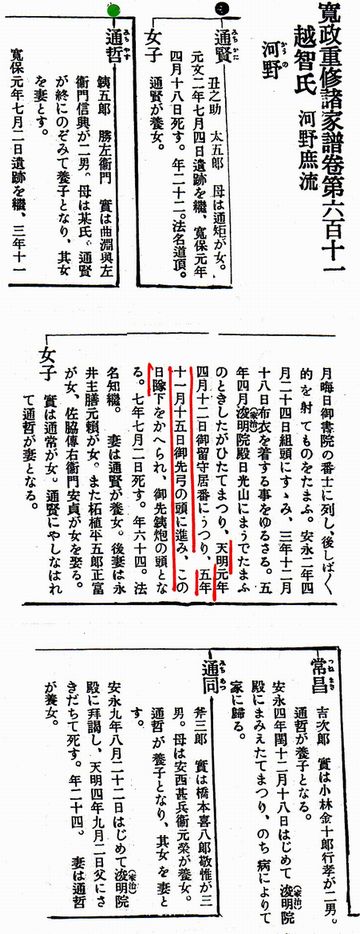 寬政重修諸家譜卷第六百十一
越智氏 河野庶流
河野
かうの
通賢
みちかた
丑之助 太五郎 母は通矩が女。
元文二年七月四日遺跡を繼、寬保元年
四月十八日死す。年二十二。法名道頂。
女子 通賢が養女。
通哲
銕五郎 勝左衞門 實は曲淵與左
衞門信興が二男。母は某氏。通賢
が終にのぞみて養子となり、其女
を妻とす。
寬保元年七月二日遺跡を繼、三年十一
月晦日御書院の番士に列し、後しば〱
的を射てものをたまふ。安永二年四
月二十四日組頭にすゝみ、三年十二月
十八日布衣を着する事をゆるさる。五
年四月浚明院殿日光山にまうでたまふ
(家治)
のときしたがひたてまつり、天明元年
四月十二日御留守居番にうつり、五年
十一月十五日御先弓の頭に進み、この
日隊下をかへられ、御先銕炮の頭とな
る。七年七月二日死す。年六十四。法
名知繼。 妻は通賢が養女。後妻は永
井主膳元頼が女。また柘植平五郎正富
が女、佐脇傳右衞門安貞が女を娶る。
女子
實は通常が女。通賢にやしなはれ
て通哲が妻となる。
常昌
つねまさ
吉次郎 實は小林金十郎行孝が二男。
通哲が養子となる。
安永四年閏十二月十八日はじめて浚明院
(家治)
殿にまみえたてまつり、のち病によりて
家に歸る。
通同
斧三郎 實は橋本喜八郎敬惟が三
男。母は安西甚兵衞元榮が養女。
通哲が養子となり、其女を妻と
す。
安永九年八月二十二日はじめて浚明院
(家治)
殿に拜謁し、天明四年九月二日父にさ
きだちて死す。年二十四。 妻は通哲
が養女。